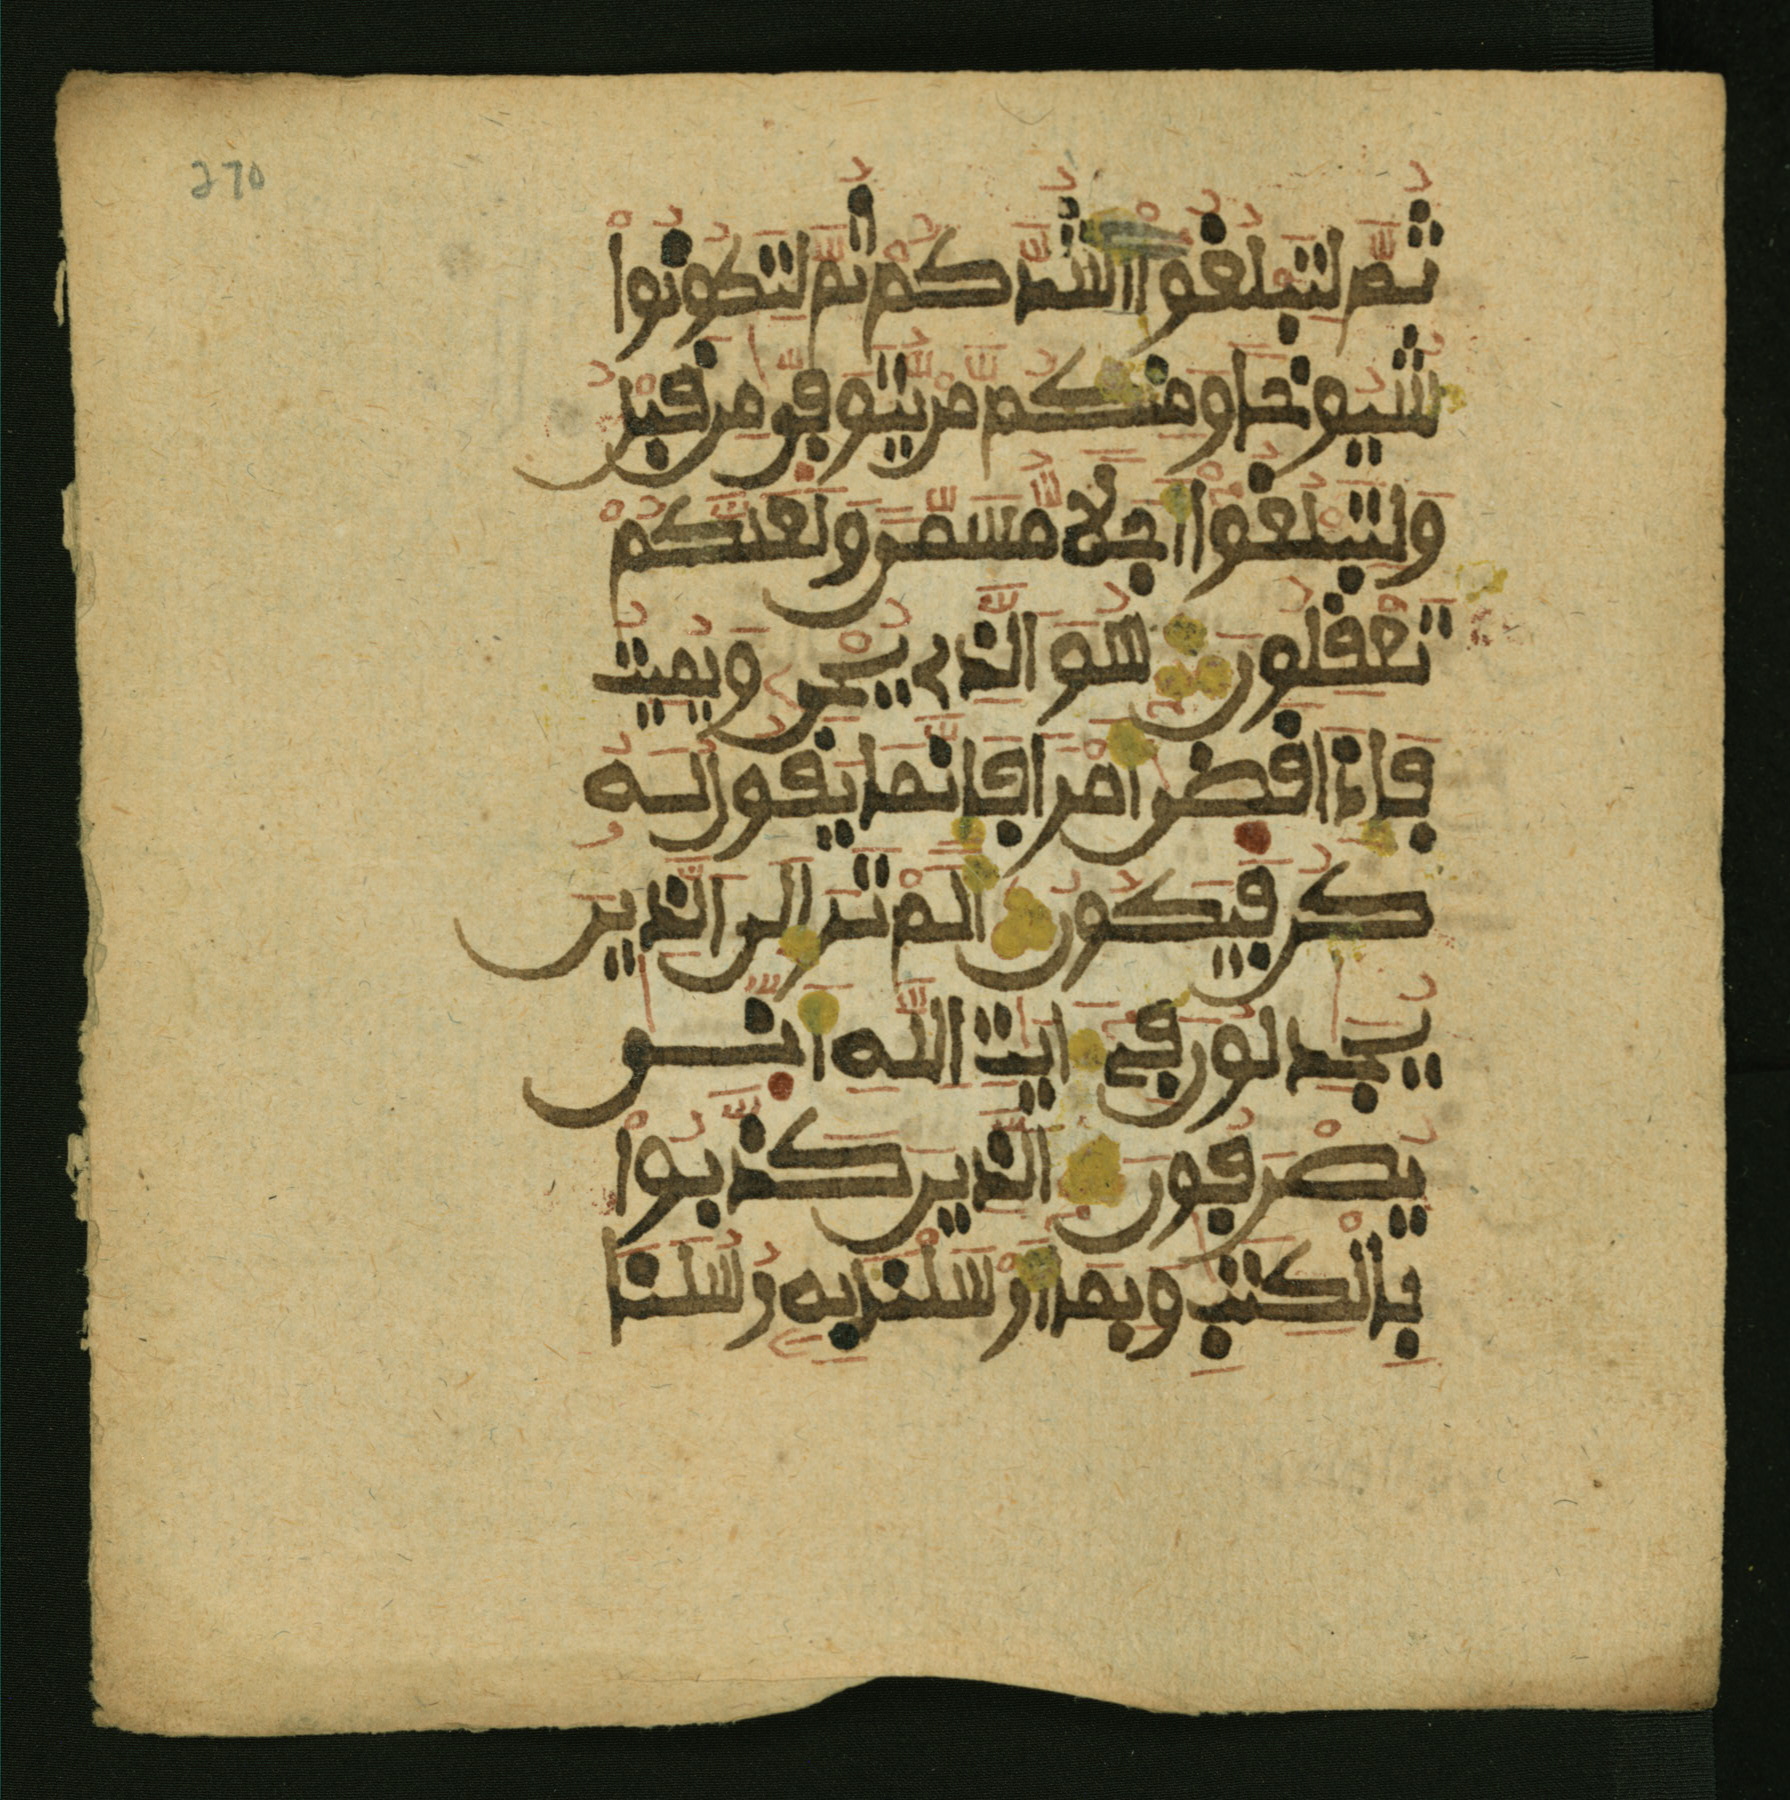 270
ثُمَّ لِتَبْلُغُوا أَشُدَّكُمْ ثُمَّ لِتَكُونُواْ
شُيُوخًا وَمِنكُم مَّنْ يُّتَوَفّٰى مِن قَبْلُ
وَلِتَبْلُغُوا أَجَلًا مُّسَمًّى وَلَعَلَّكُمْ
تَعْقِلُونَ هُوَ الَّذِي يُحْيِ وَيُمِيتُ
فَإِذَا قَضٰى أَمْرًا فَإِنَّمَا يَقُولُ لَهُ
كُن فَيَكُونُ أَلَمْ تَرَ إِلَى الَّذِينَ
يُجَٰدِلُونَ فِي ءَايَٰتِ اللَّهِ أَنّٰى
يُصْرَفُونَ الَّذِينَ كَذَّبُواْ
بِالْكِتَٰبِ وَبِمَا أَرْسَلْنَا بِهِ رُسُلَنَا